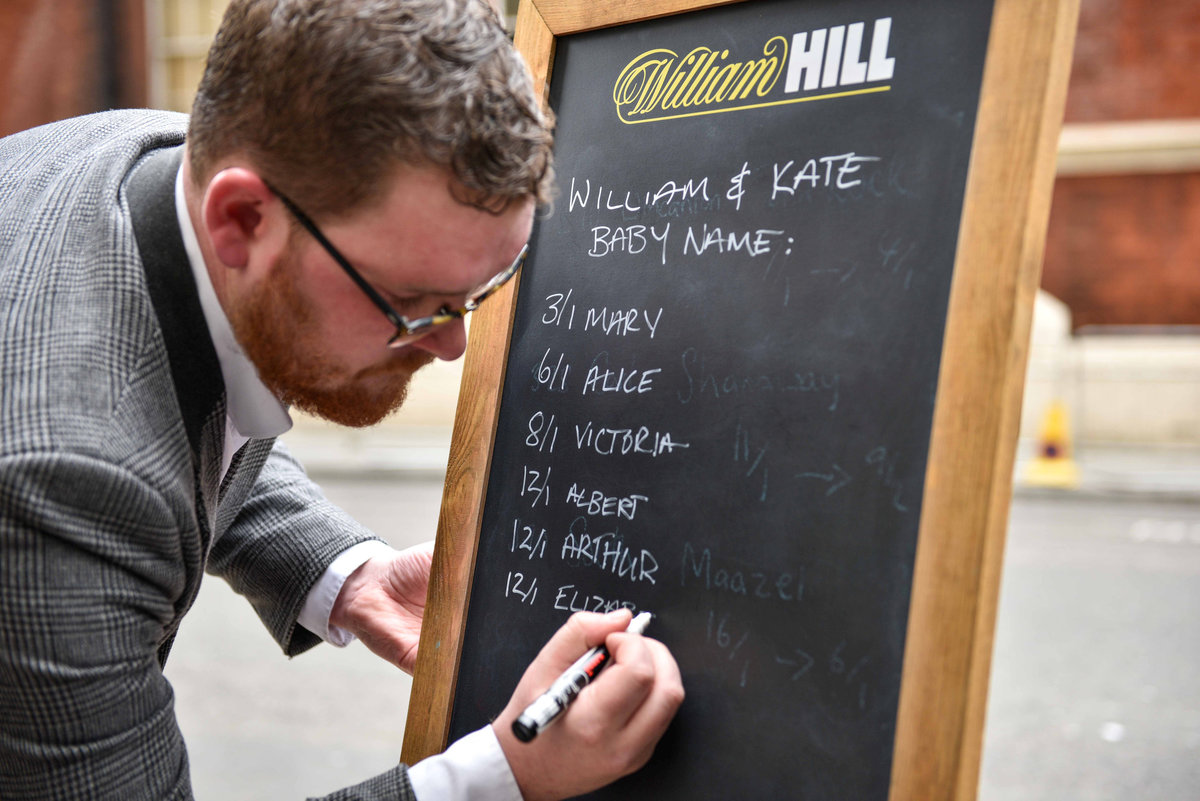 William HILL
WILLIAM & KATE
BABY NAME:
3/1 MARY
6/1 ALICE
8/1 VICTORIA
12/1 ALBERT
12/1 ARTHUR
12/1 ELIZAB
11/1 →
Maazel
16/1 → 6/1